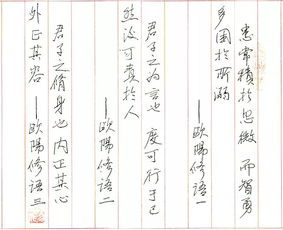 患常積於忽微 而智勇
多困於所溺
——歐陽修语一
君子之为言也 度可行于己
然後可責於人
——歐陽修语二
君子之脩身也内正其心
外正其容——歐陽修语三